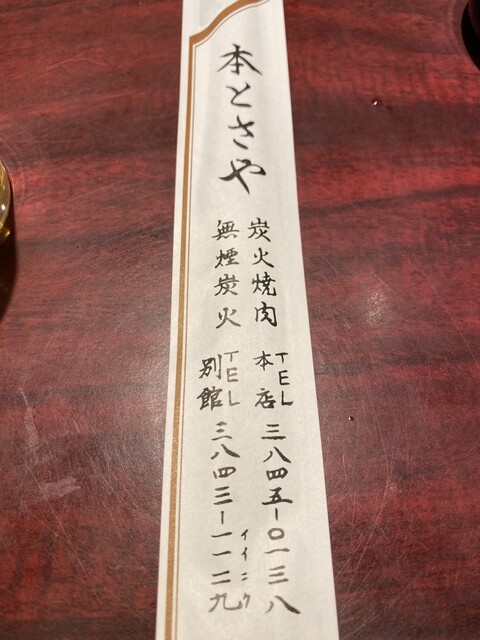 本とさや
炭火焼肉
本店 TEL 三八四五-〇一三八
無煙炭火
別館 TEL 三八四三-一一二九
イイニク